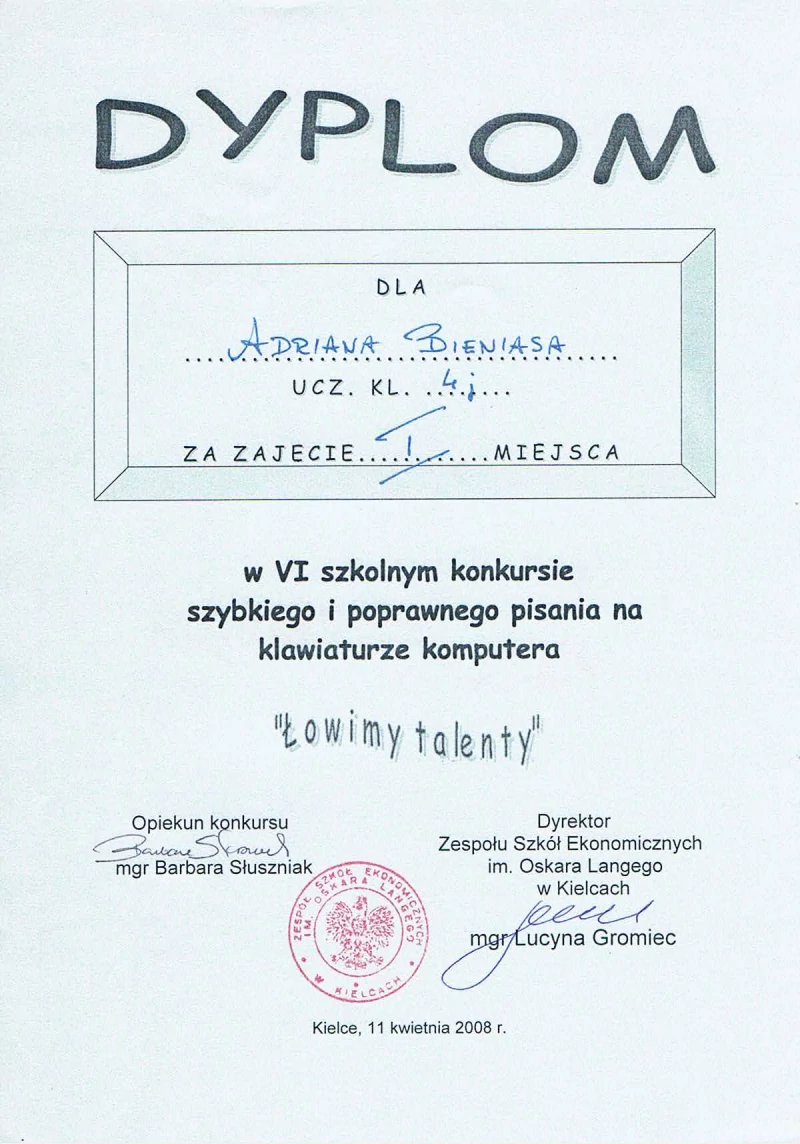 DYPLOM
DLA
....ADRIANA BIENIASA....
UCZ. KL. ..4j...
ZA ZAJECIE....I......MIEJSCA
w VI szkolnym konkursie
szybkiego i poprawnego pisania na
klawiaturze komputera
"Łowimy talenty"
Opiekun konkursu
mgr Barbara Słuszniak
Dyrektor
Zespołu Szkół Ekonomicznych
im. Oskara Langego
w Kielcach
mgr Lucyna Gromiec
ZESPÓŁ SZKÓŁ EKONOMICZNYCH
IM. OSKARA LANGEGO
W KIELCACH
Kielce, 11 kwietnia 2008 r.